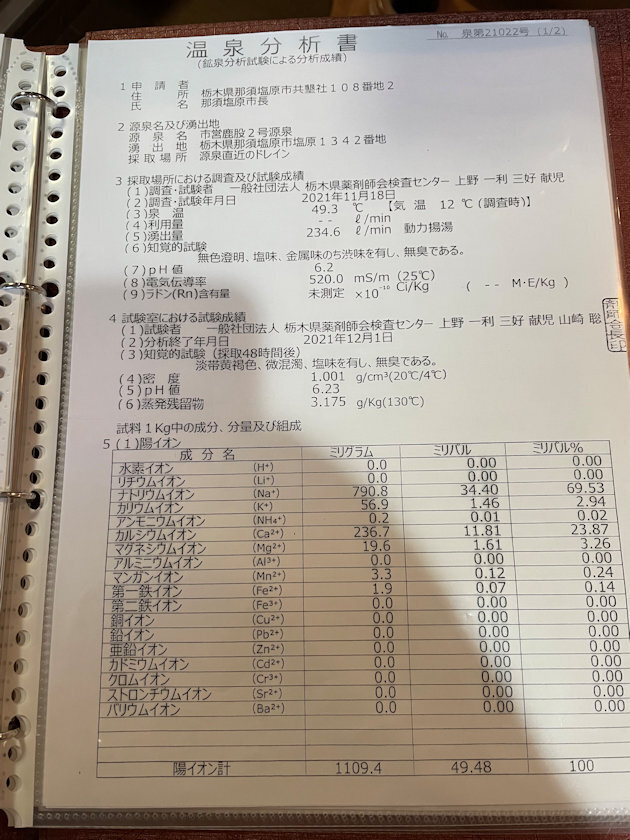 № 泉第21022号 (1/2)
温泉分析書
(鉱泉分析試験による分析成績)
1 申請者
住所 栃木県那須塩原市共墾社108番地2
氏名 那須塩原市長
2 源泉名及び湧出地
源泉名 市営鹿股2号源泉
湧出地 栃木県那須塩原市塩原1342番地
採取場所 源泉直近のドレイン
3 採取場所における調査及び試験成績
(1)調査・試験者 一般社団法人 栃木県薬剤師会検査センター 上野 一利 三好 献児
(2)調査・試験年月日 2021年11月18日
(3)泉温 49.3 ℃ 【気 温 12 ℃ (調査時)】
(4)利用量 -- ℓ/min
(5)湧出量 234.6 ℓ/min 動力揚湯
(6)知覚的試験
無色澄明、塩味、金属味のち渋味を有し、無臭である。
(7)pH値 6.2
(8)電気伝導率 520.0 mS/m (25℃)
(9)ラドン(Rn)含有量 未測定 ×10⁻¹⁰ Ci/Kg ( -- M·E/Kg )
4 試験室における試験成績
(1)試験者 一般社団法人 栃木県薬剤師会検査センター 上野 一利 三好 献児 山崎 聡
(2)分析終了年月日 2021年12月1日
(3)知覚的試験(採取48時間後)
淡帯黄褐色、微混濁、塩味を有し、無臭である。
(4)密度 1.001 g/cm³(20℃/4℃)
(5)pH値 6.23
(6)蒸発残留物 3.175 g/Kg(130℃)
試料1Kg中の成分、分量及び組成
5 (1)陽イオン
成分名 ミリグラム ミリバル ミリバル%
水素イオン (H⁺) 0.0 0.00 0.00
リチウムイオン (Li⁺) 0.0 0.00 0.00
ナトリウムイオン (Na⁺) 790.8 34.40 69.53
カリウムイオン (K⁺) 56.9 1.46 2.94
アンモニウムイオン (NH₄⁺) 0.2 0.01 0.02
カルシウムイオン (Ca²⁺) 236.7 11.81 23.87
マグネシウムイオン (Mg²⁺) 19.6 1.61 3.26
アルミニウムイオン (Al³⁺) 0.0 0.00 0.00
マンガンイオン (Mn²⁺) 3.3 0.12 0.24
第一鉄イオン (Fe²⁺) 1.9 0.07 0.14
第二鉄イオン (Fe³⁺) 0.0 0.00 0.00
銅イオン (Cu²⁺) 0.0 0.00 0.00
鉛イオン (Pb²⁺) 0.0 0.00 0.00
亜鉛イオン (Zn²⁺) 0.0 0.00 0.00
カドミウムイオン (Cd²⁺) 0.0 0.00 0.00
クロムイオン (Cr³⁺) 0.0 0.00 0.00
ストロンチウムイオン (Sr²⁺) 0.0 0.00 0.00
バリウムイオン (Ba²⁺) 0.0 0.00 0.00
陽イオン計 1109.4 49.48 100